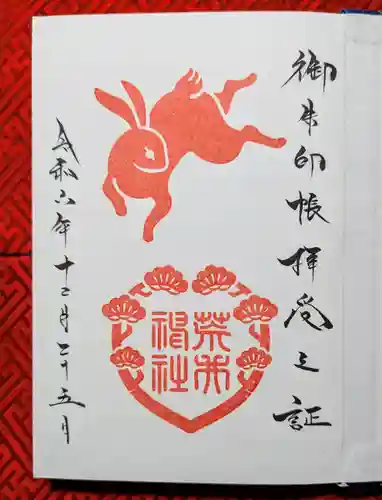 御朱印帳拝受之証
令和六年十二月二十五日